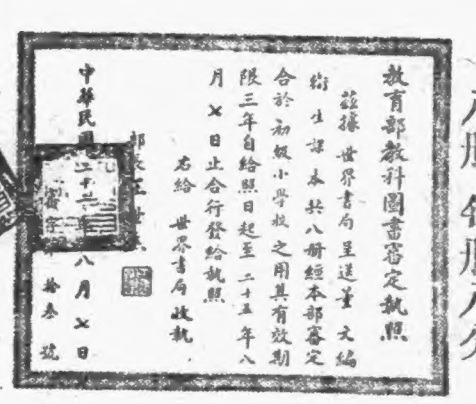 教育部教科圖書審定執照
茲據 世界書局 呈送董 文編
衛生課本 共八冊經本部審定
合於 初級小學校 之用其有效期
限三年自給照日起至 二十五 年八
月 七 日止合行發給執照
右給 世界書局 收執
部長王世
中華民國二十二 八 月 七 日
字 拾叁 號